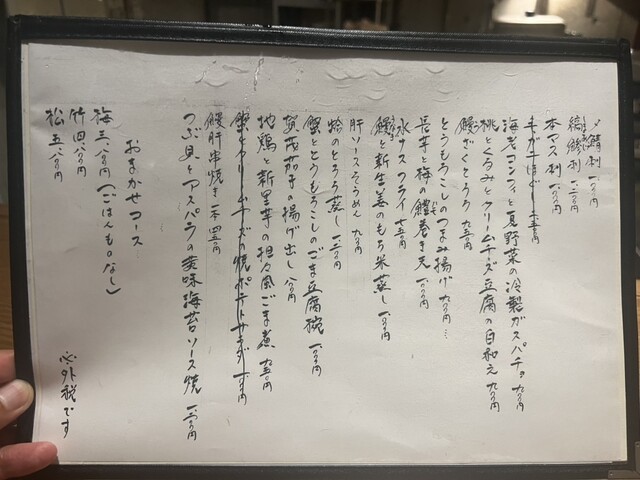 〆鯖刺 一、〇〇〇円
縞鯵刺 一、二〇〇円
本マス刺 一、〇〇〇円
毛ガニほぐし 一、五〇〇円
海老コンフィと夏野菜の冷製ガスパチョ 九〇〇円
桃とくるみとクリームチーズ豆腐の白和え 九〇〇円
鰻ざくとろろ 九五〇円
とうもろこしのつまみ揚げ 九〇〇円
長芋と梅の鱧巻き天 一、〇〇〇円
水ナスフライ 七五〇円
鰻と新生姜のもち米蒸し 一、〇〇〇円
肝ソースそうめん 九〇〇円
蛤のとろろ蒸し 一、二〇〇円
蟹ととうもろこしのごま豆腐椀 一、〇〇〇円
賀茂茄子の揚げ出し 八〇〇円
地鶏と新里芋の担々風ごま煮 九五〇円
蟹とクリームチーズの焼ポテトサラダ 一、〇〇〇円
鰻肝串焼き 一本 四五〇円
つぶ貝とアスパラの黄味海苔ソース焼 一、二〇〇円
おまかせコース
梅 三、八〇〇円（ごはんものなし）
竹 四、八〇〇円
松 五、八〇〇円
外税です